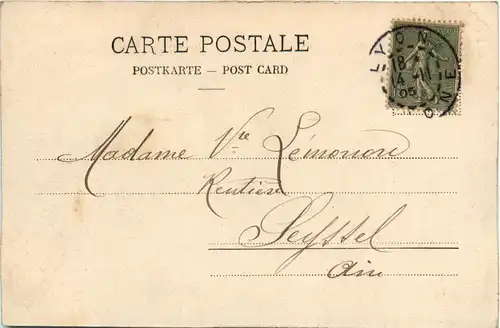 CARTE POSTALE
POSTKARTE — POST CARD
LYON
18
14 11
05
Madame Vve
Rentière
Seyssel
Ain